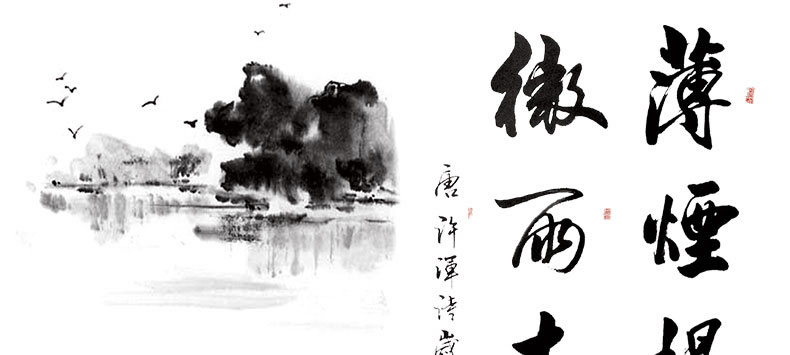 薄煙
微雨
唐許渾詩